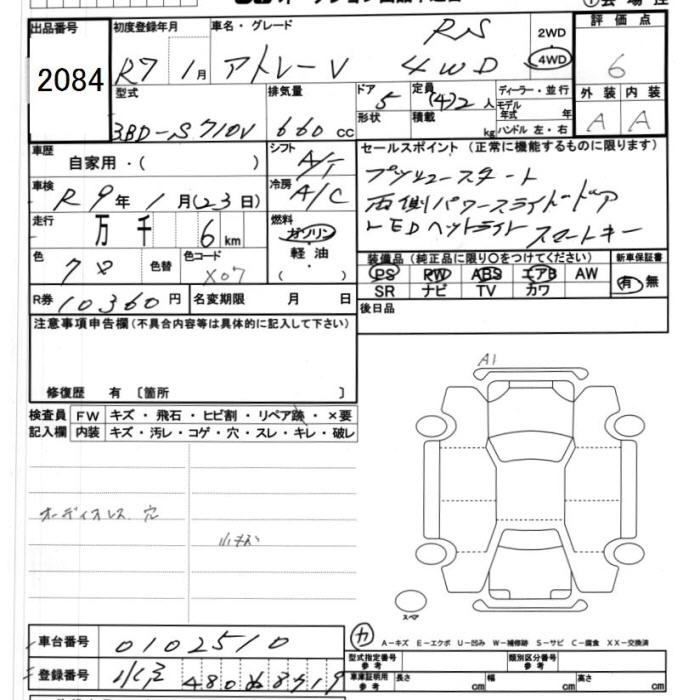 出品番号 初度登録年月 車名・グレード RS 2WD 評価点
2084 R7 1月 アトレーV 4WD 4WD 6
型式 排気量 ドア 5 定員 (4)2人 ディーラー・並行 外装 内装
3BD-S710V 660cc 形状 積載 kg モデル年式 年 ハンドル 左・右 A A
車歴 シフト A/T セールスポイント(正常に機能するものに限ります)
自家用・( ) プッシュスタート
車検 R9年1月(23日) 冷房 A/C 両側パワースライドドア
走行 万千 6km 燃料 ガソリン LEDヘッドライト スマートキー
軽油・ ( )
色 色替 色コード X07 装備品(純正品に限り○をつけてください) 新車保証書
PS PW ABS エアB AW 有 無
SR ナビ TV カワ
R券 10360円 名変期限 月 日 後日品
注意事項申告欄(不具合内容等は具体的に記入して下さい)
修復歴 有〔箇所 〕
A1
検査員 FW キズ・飛石・ヒビ割・リペア跡・×要
記入欄 内装 キズ・汚レ・コゲ・穴・スレ・キレ・破レ
オーディオレス 穴
小キズ
スペア
車台番号 0102510
カ A-キズ E-エクボ U-凹み W-補修跡 S-サビ C-腐食 XX-交換済
型式指定番号 参考 類別区分番号 参考
登録番号 480
車庫証明用 参考 長さ cm 幅 cm 高さ cm